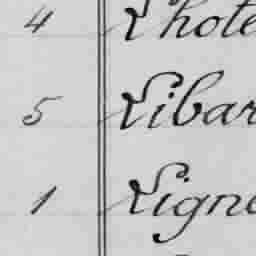 4 Lhote
5 Libar
1 Ligne